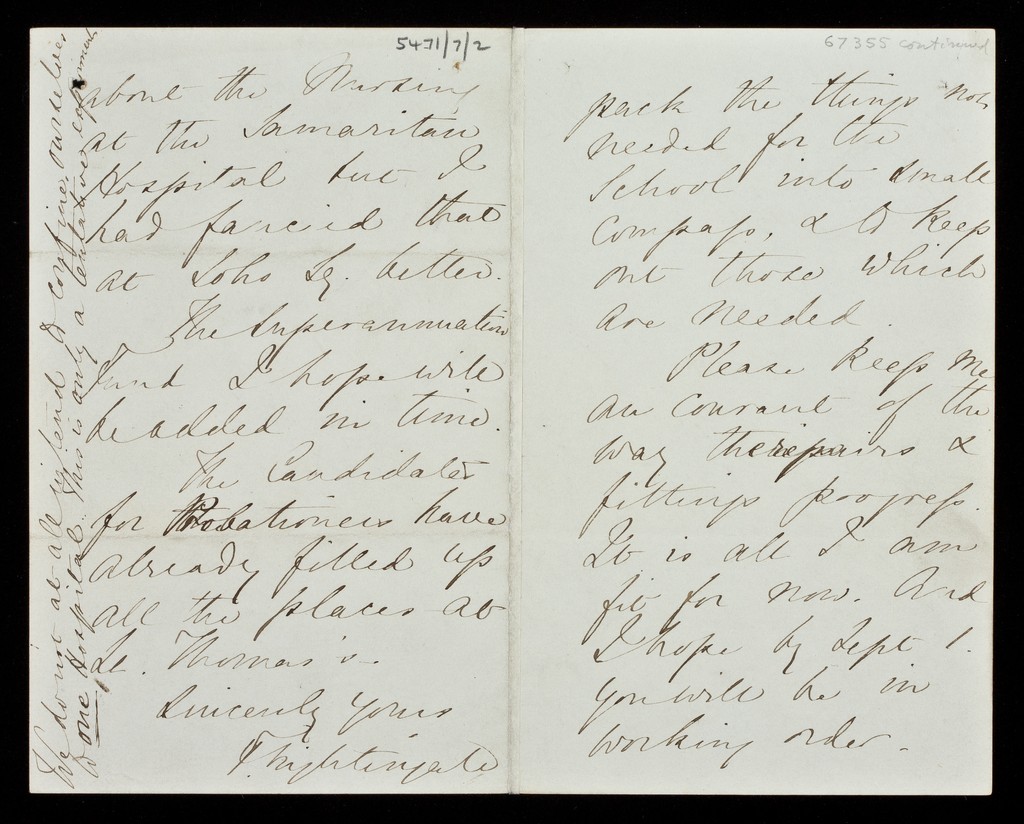 5471/7/2
about the Nursing
at the Samaritan
Hospital but I
had fancied that
at Soho Sq. better.
The Superannuation
Fund I hope will
be added in time.
The Candidates
for Probationers have
already filled up
all the places at
St. Thomas's.
Sincerely yours
F. Nightingale
We do not at all intend to confine ourselves
to one Hospital. This is only a tentative experiment
67355 continued
pack the things not
needed for the
School into small
compass, & to keep
out those which
are needed.
Please keep me
au courant of the
way the repairs &
fittings progress.
It is all I am
fit for now. And
I hope by Sept 1.
you will be in
working order.